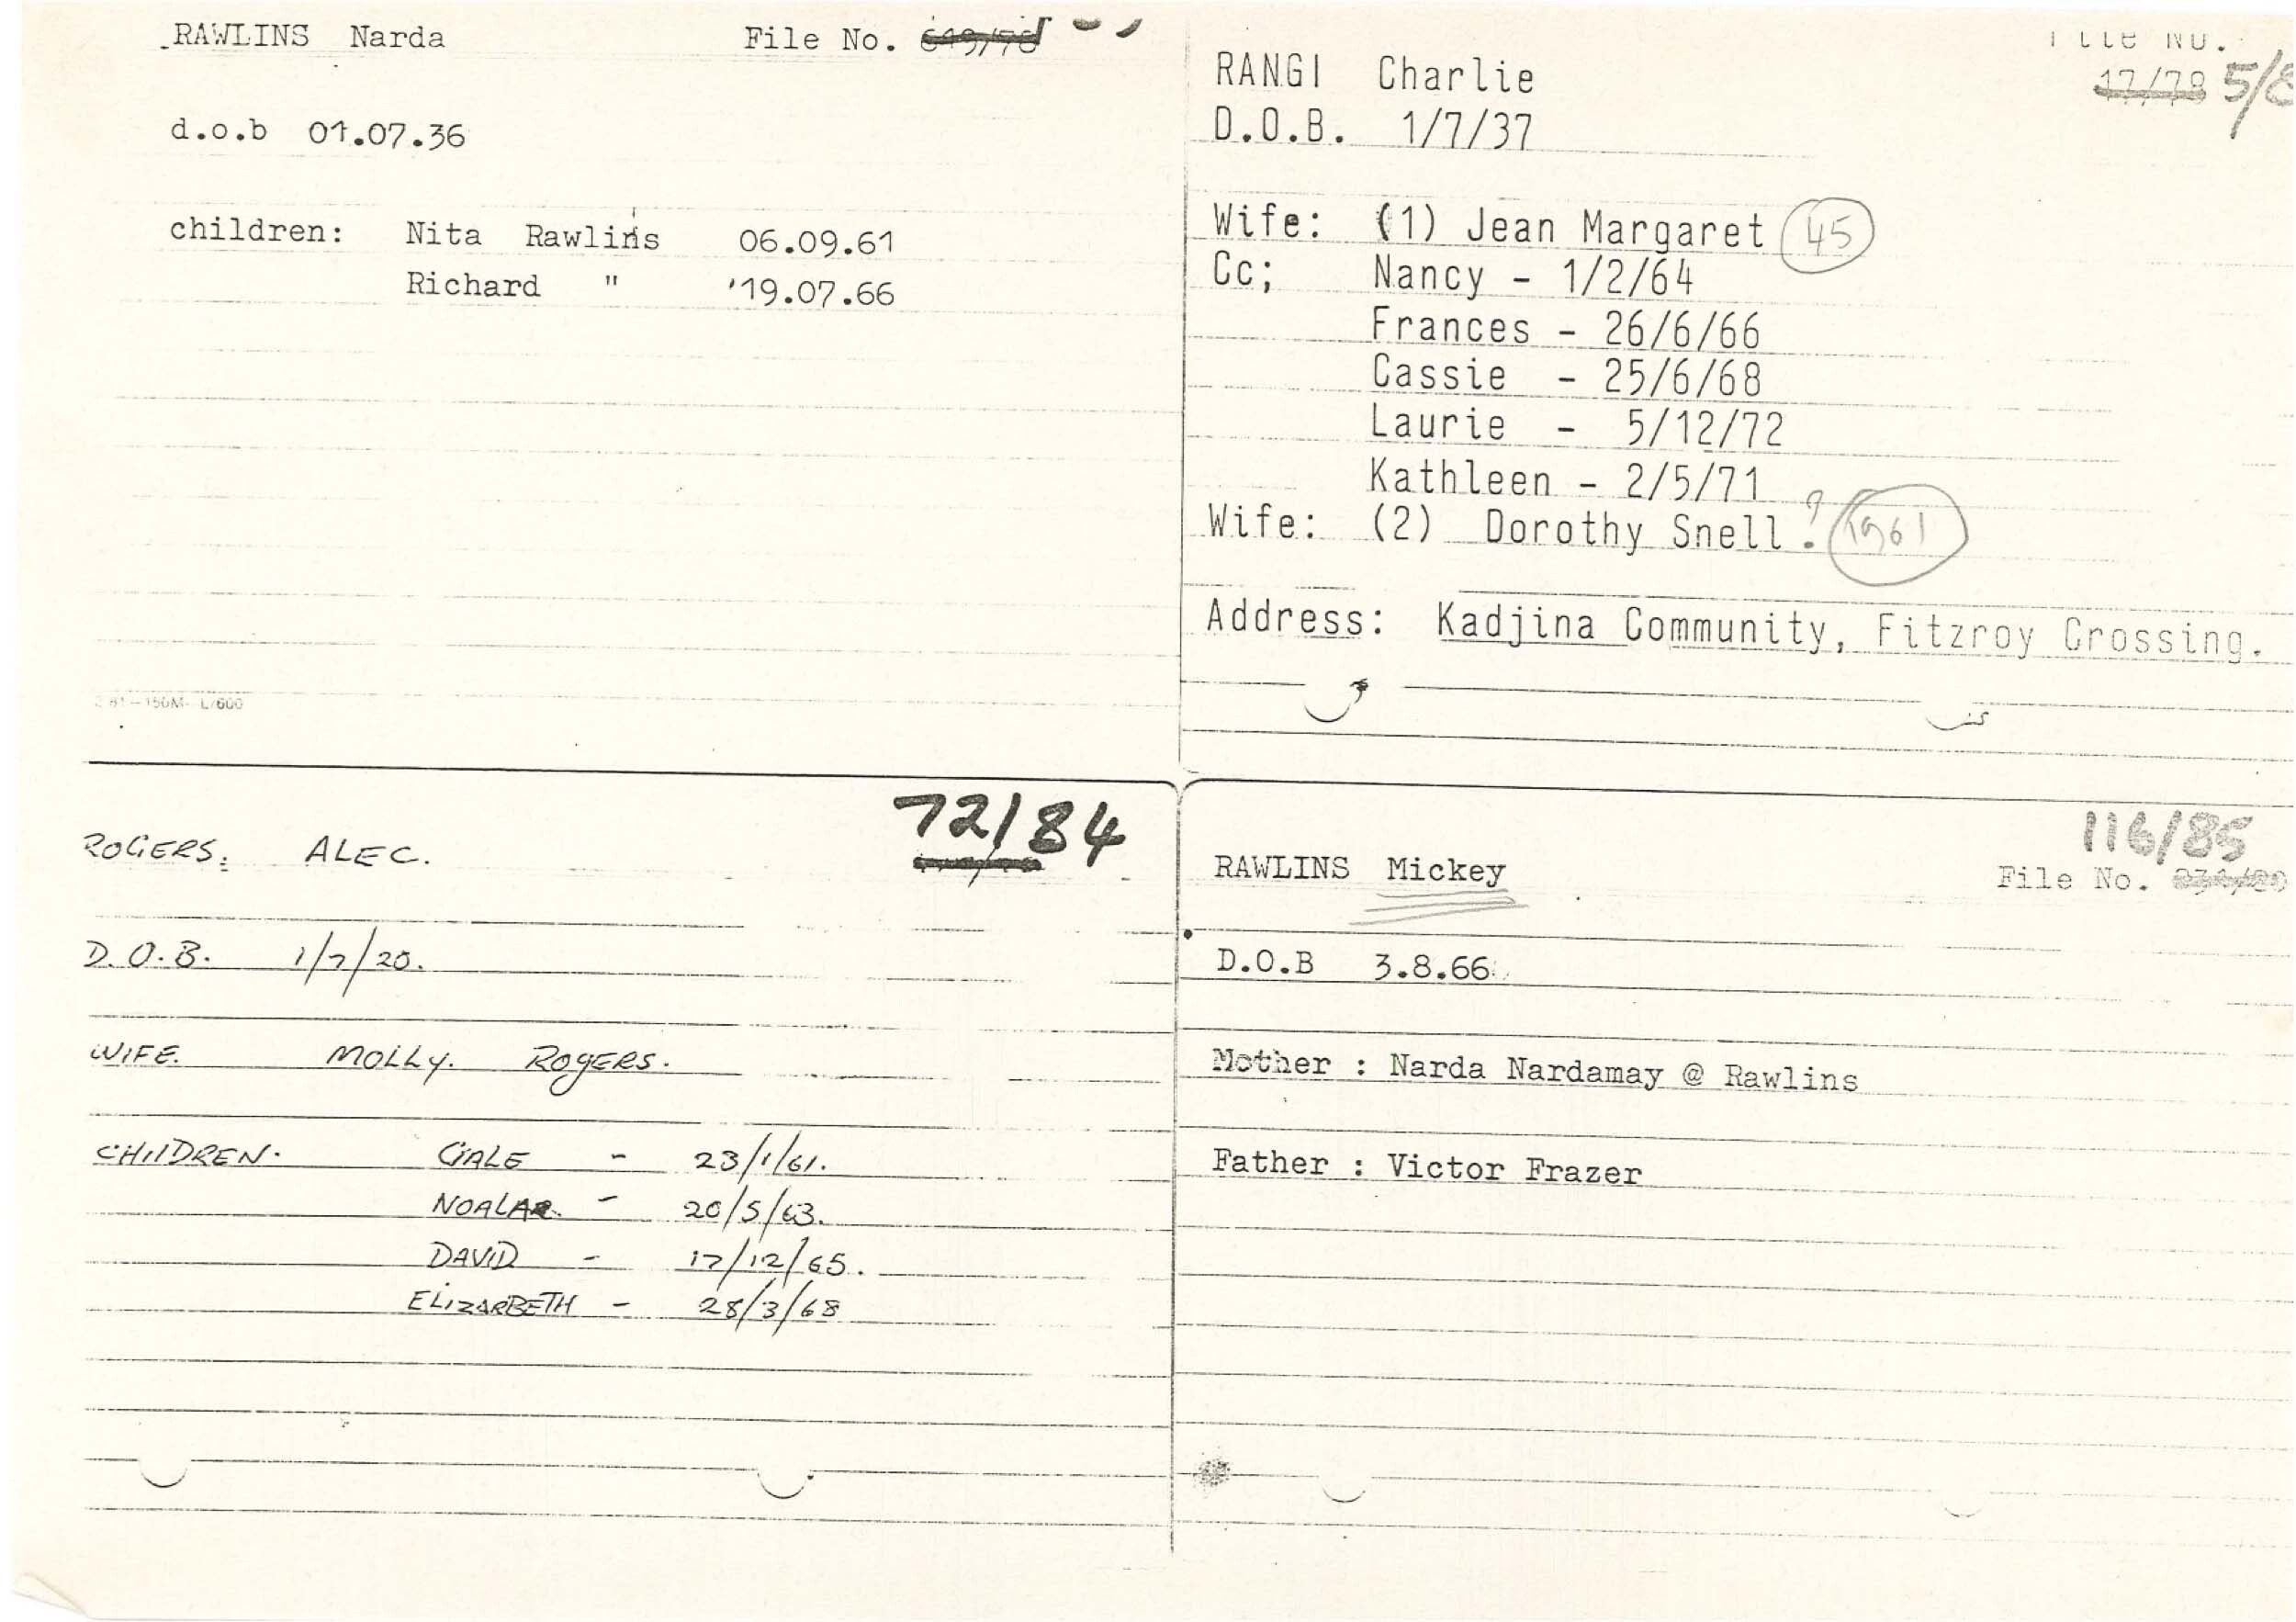 RAWLINS Narda File No. 649/78
d.o.b 01.07.36
children: Nita Rawlins 06.09.61
Richard " 19.07.66
RANGI Charlie File No.
17/78 5/8
D.O.B. 1/7/37
Wife: (1) Jean Margaret 45
Cc; Nancy - 1/2/64
Frances - 26/6/66
Cassie - 25/6/68
Laurie - 5/12/72
Kathleen - 2/5/71
Wife: (2) Dorothy Snell ? 1961
Address: Kadjina Community, Fitzroy Crossing.
72/84
ROGERS: ALEC.
D.O.B. 1/7/20.
WIFE. MOLLY. ROGERS.
CHILDREN. GALE - 23/1/61.
NOALAR. - 20/5/63.
DAVID - 17/12/65.
ELIZARBETH - 28/3/68
116/85
RAWLINS Mickey File No.
D.O.B 3.8.66
Mother : Narda Nardamay @ Rawlins
Father : Victor Frazer